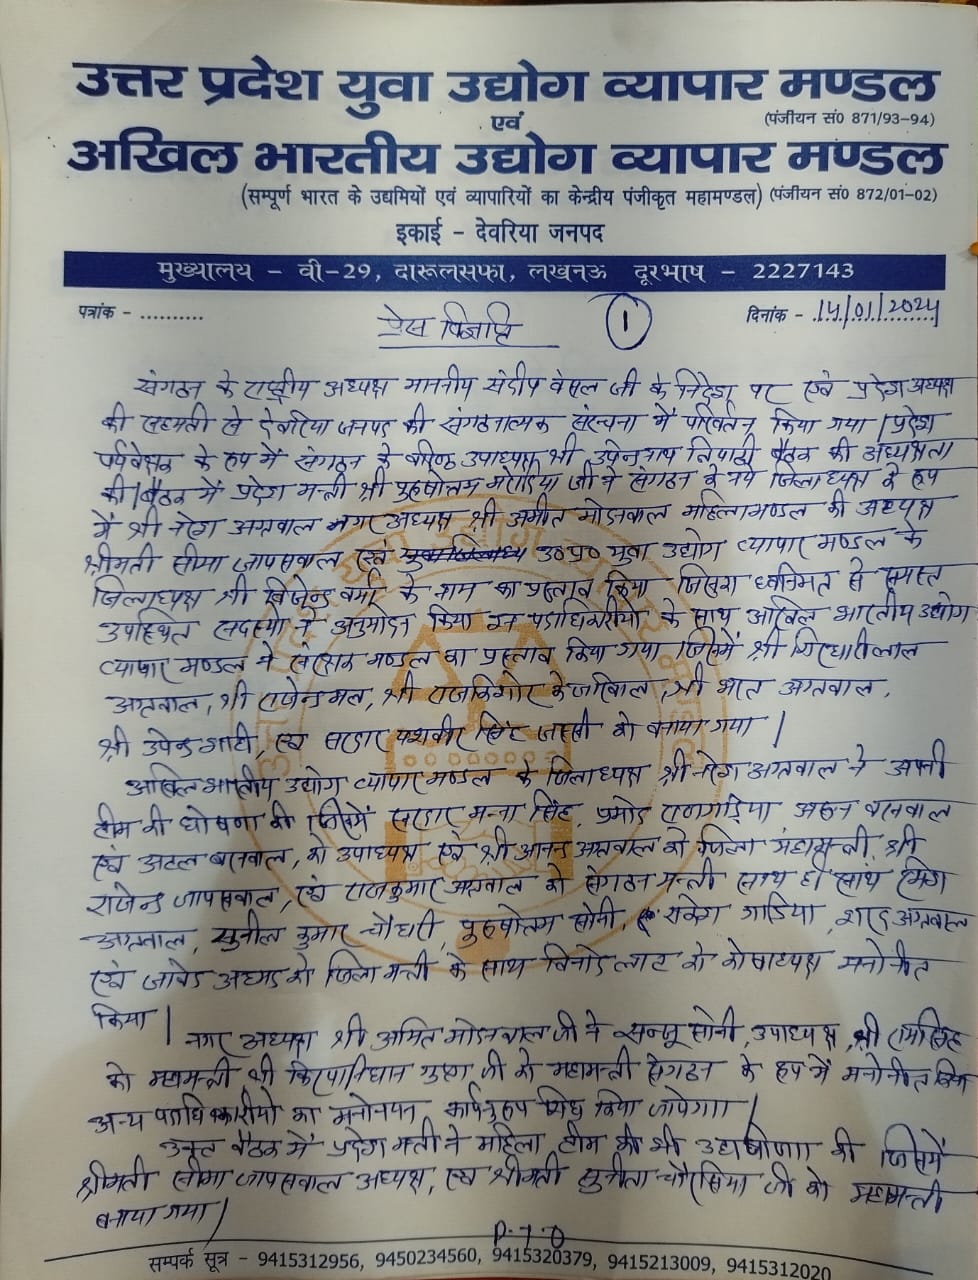 उत्तर प्रदेश युवा उद्योग व्यापार मण्डल
एवं
(पंजीयन सं0 871/93-94)
अखिल भारतीय उद्योग व्यापार मण्डल
(सम्पूर्ण भारत के उद्यमियों एवं व्यापारियों का केन्द्रीय पंजीकृत महामण्डल) (पंजीयन सं0 872/01-02)
इकाई - देवरिया जनपद
मुख्यालय - वी-29, दारूलसफा, लखनऊ दूरभाष - 2227143
पत्रांक - ..........
प्रेस विज्ञप्ति
1
दिनांक - 14/01/2024
संगठन के राष्ट्रीय अध्यक्ष माननीय संदीप बंसल जी के निर्देश पर एवं प्रदेश अध्यक्ष
की सहमती से देवरिया जनपद की संगठनात्मक संरचना में परिवर्तन किया गया | प्रदेश
पर्यवेक्षक के रूप में संगठन के वरिष्ठ उपाध्यक्ष श्री उपेन्द्रनाथ त्रिपाठी बैठक की अध्यक्षता
की | बैठक में प्रदेश मन्त्री श्री पुरुषोत्तम मरोदिया जी ने संगठन के नये जिलाध्यक्ष के रूप
में श्री नरेश अग्रवाल नगर अध्यक्ष श्री अमीत मोदनवाल महिला मण्डल की अध्यक्ष
श्रीमती सीमा जायसवाल एवं उ०प्र० युवा उद्योग व्यापार मण्डल के
जिलाध्यक्ष श्री विजेन्द्र वर्मा के नाम का प्रस्ताव किया जिसका ध्वनिमत से समस्त
उपस्थित सदस्यो ने अनुमोदन किया इन पदाधिकारीयो के साथ अखिल भारतीय उद्योग
व्यापार मण्डल ने संरक्षक मण्डल का प्रस्ताव किया गया जिसमें श्री गिरधारीलाल
अग्रवाल, श्री राजेन्द्र मल, श्री राजकिशोर केजरिवाल, श्री भरत अग्रवाल,
श्री उपेन्द्र शाही, एवं सरदार यशवीर सिंह जस्सी को बनाया गया |
अखिल भारतीय उद्योग व्यापार मण्डल के जिलाध्यक्ष श्री नरेश अग्रवाल ने अपनी
टीम की घोषणा की जिसमें सरदार मन्ना सिंह, प्रमोद राजगड़िया अरुन बरनवाल
एवं अटल बरनवाल, को उपाध्यक्ष एवं श्री आनन्द अग्रवाल को जिला महामन्त्री, श्री
राजेन्द्र जायसवाल, एवं राजकुमार अग्रवाल को संगठन मन्त्री साथ ही साथ
अग्रवाल, सुनील कुमार चौधरी, पुरुषोत्तम सोनी, राकेश गाडिया, शरद अग्रवाल
एवं जावेद अहमद को जिला मन्त्री के साथ विनोद लाट को कोषाध्यक्ष मनोनीत
किया |
नगर अध्यक्ष श्री अमित मोदनवाल जी ने सन्जू सोनी, उपाध्यक्ष, श्री
को महामन्त्री श्री किरपानिधान गुप्ता जी को महामन्त्री संगठन के रूप में मनोनीत किया
अन्य पदाधिकारीयो का मनोनयन कार्यनुरूप शिघ्र किया जायेगा |
उक्त बैठक में प्रदेश मन्त्री ने महिला टीम की भी उद्घोषणा की जिसमें
श्रीमती सीमा जायसवाल अध्यक्ष, एवं श्रीमती सुनीता चौरसिया जी को महामन्त्री
बनाया गया |
P.T.O
सम्पर्क सूत्र - 9415312956, 9450234560, 9415320379, 9415213009, 9415312020